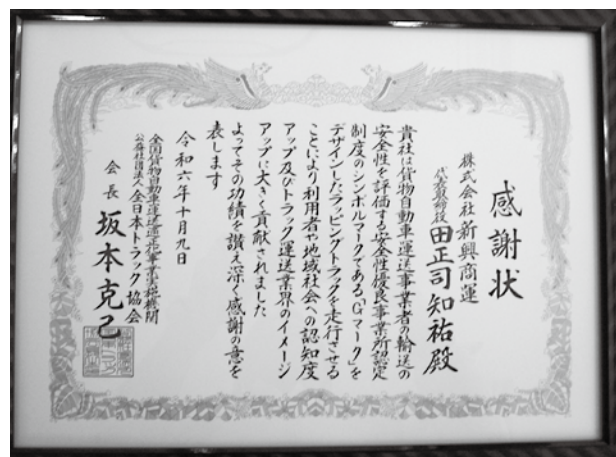 感謝状
株式会社新興商運
代表取締役 田正司知祐殿
貴社は貨物自動車運送事業者の輸送の
安全性を評価する安全性優良事業所認定
制度のシンボルマークである「Gマーク」を
デザインしたラッピングトラックを走行させる
ことにより利用者や地域社会への認知度
アップ及びトラック運送業界のイメージ
アップに大きく貢献されました
よってその功績を讃え深く感謝の意を
表します
令和六年十月九日
全国貨物自動車運送適正化事業実施機関
公益社団法人全日本トラック協会
会長 坂本克己